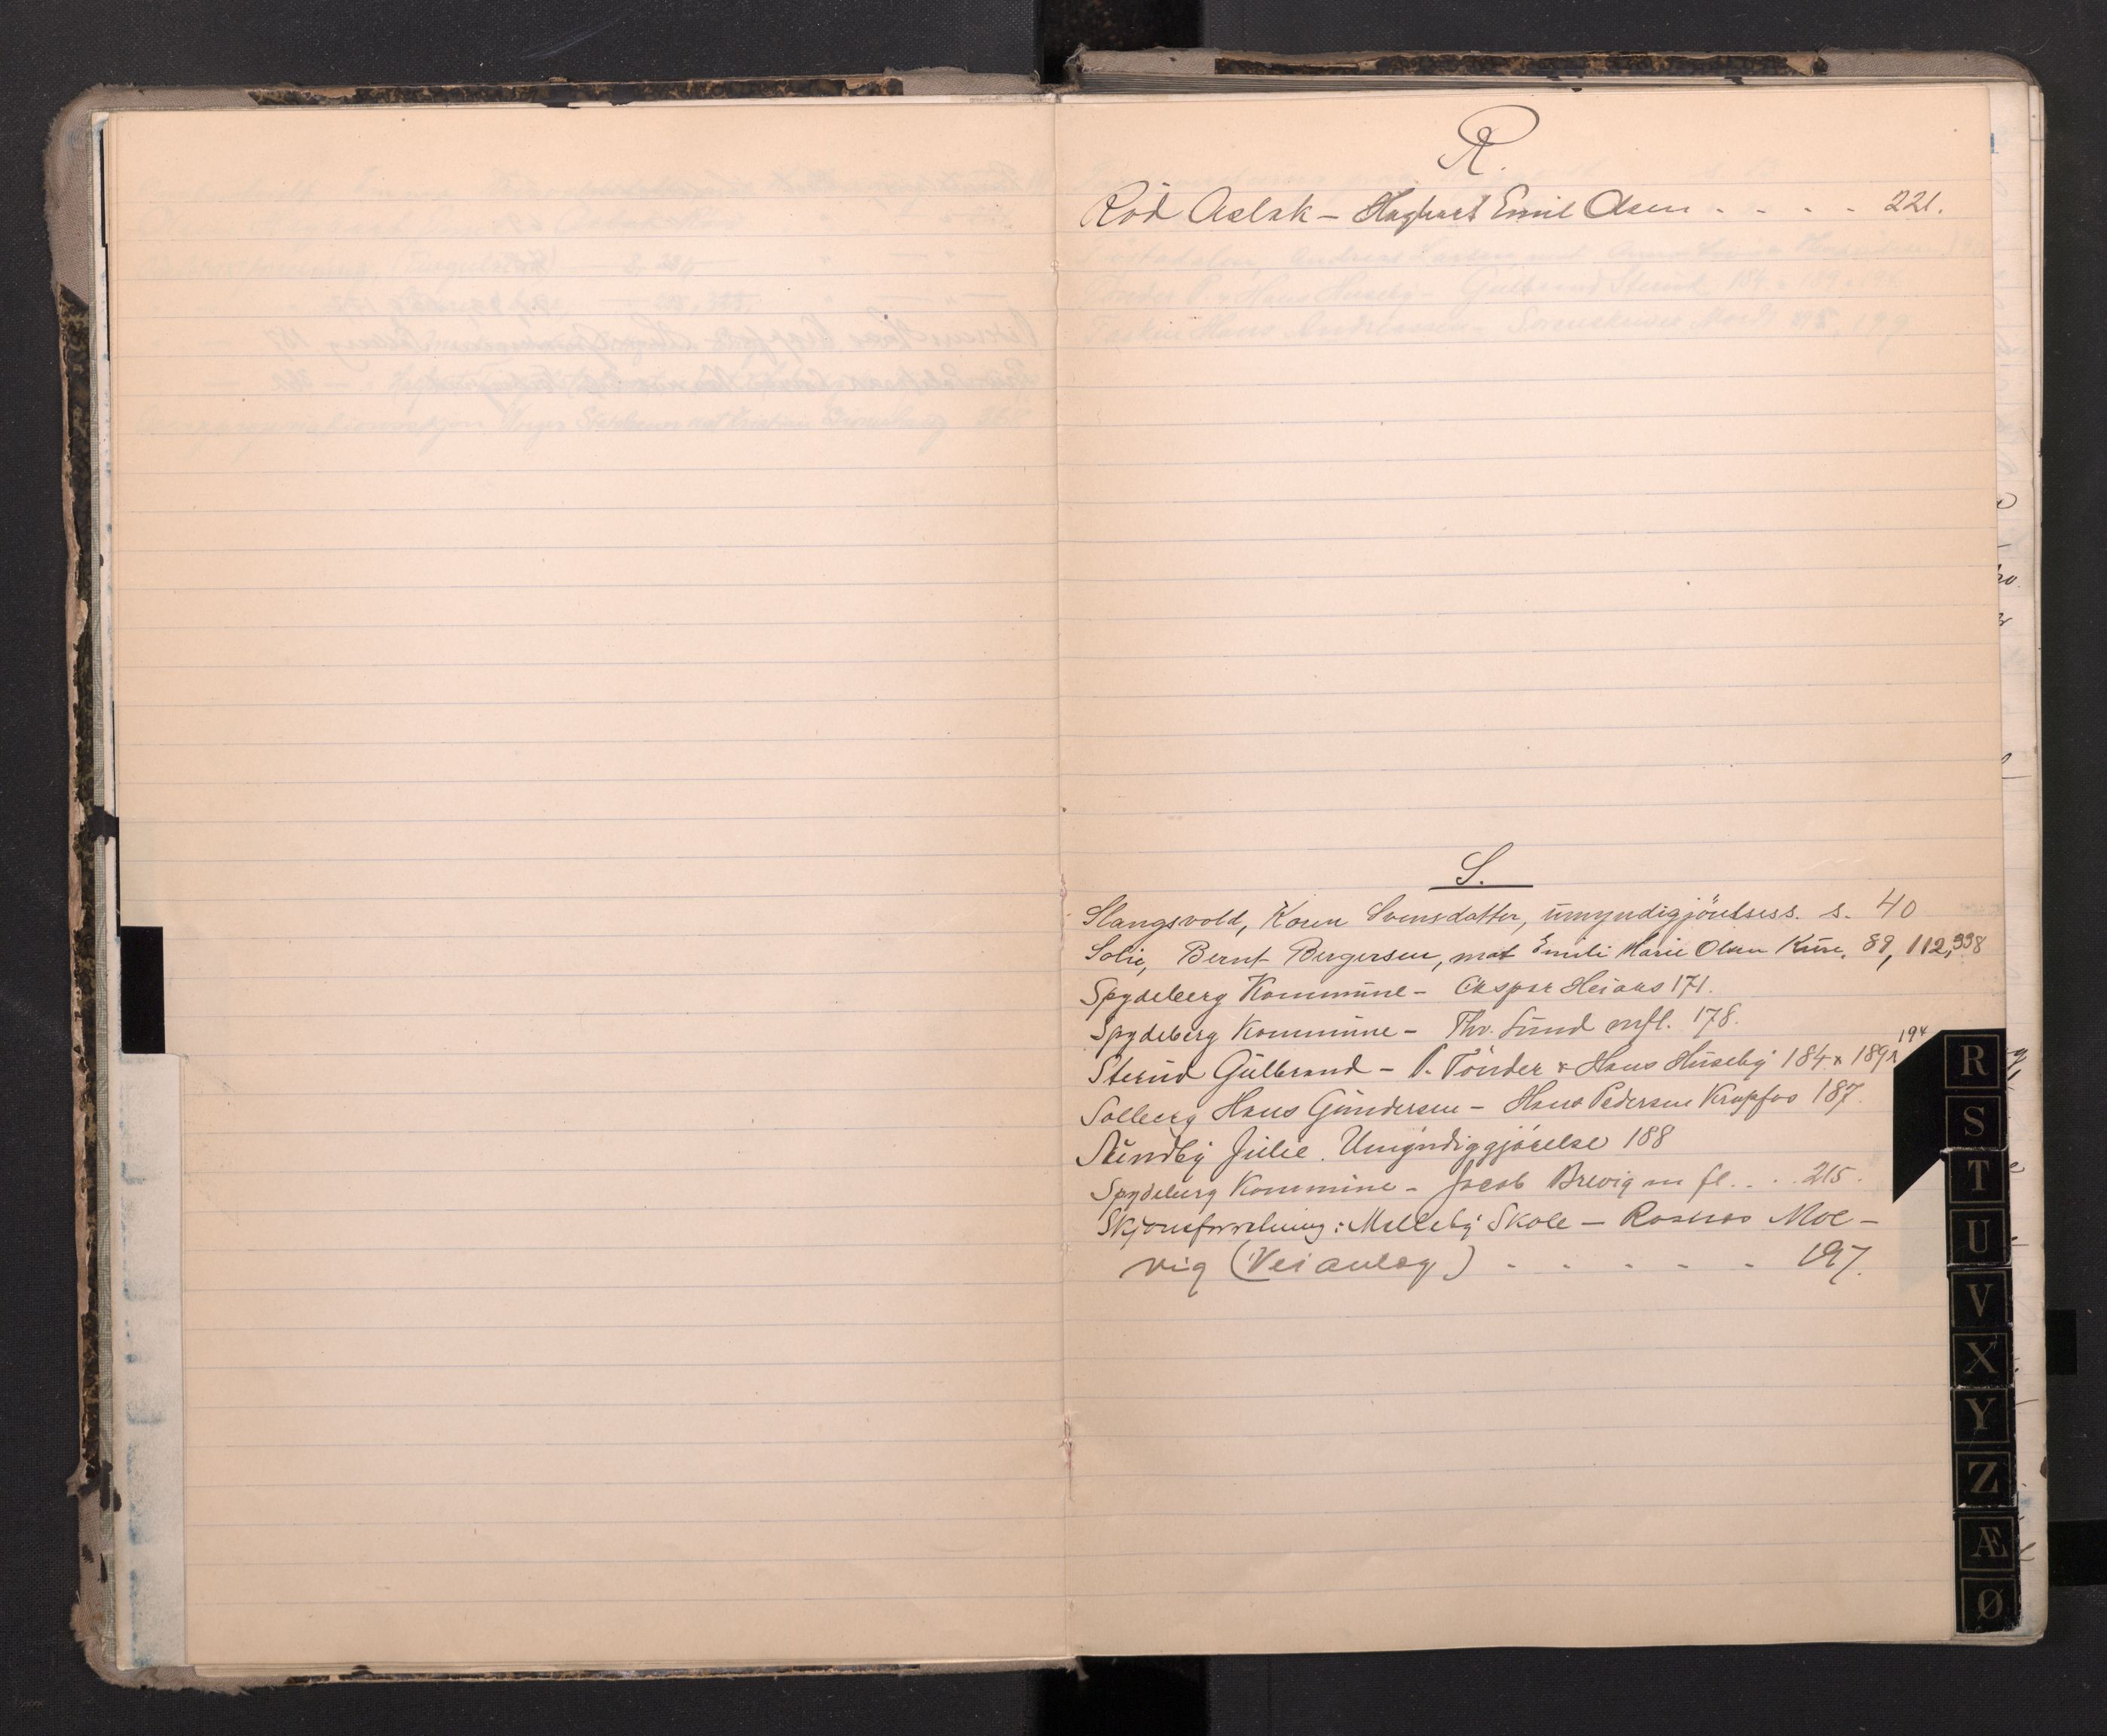 R.
Röd Aslak – Haghart Emil Olsen - - - - 221.
S.
Slangsvold, Karen Svensdatter, umyndigjörelsess. s. 40
Solie, Bernt Bergersen, mot Emili Marie Olsen Kure, 89, 112, 338
Spydeberg Kommune – Caspar Heiaas 171.
Spydeberg Kommune – Thv. Sund mfl. 178.
194
Sterud Gulbrand – P. Tönder & Hans Huseby 184 x 189
Solberg Hans Gundersen – Hans Pedersen Kropfos 187.
Sundby Julie. Umyndiggjörelse 188
Spydeberg Kommune – Jacob Brevig m fl. . . 215.
Skjönsforretning: Melleby Skole – Rosnes Moe-
vig (Veianlæg) - - - - - 197.
R
S
T
U
V
X
Y
Z
Æ
Ø